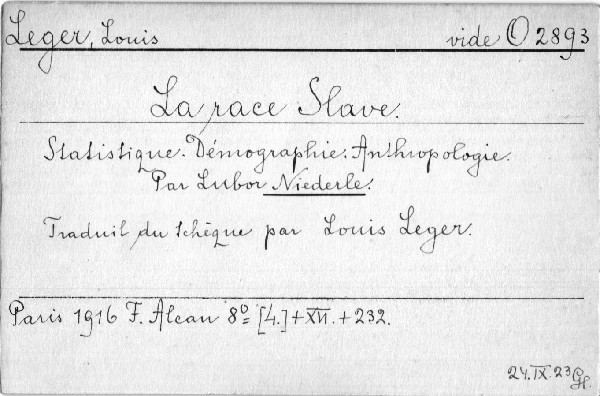 Leger, Louis vide O 2893
La race Slave.
Statistique. Démographie. Anthropologie.
Par Lubor Niederle.
Traduit du tchèque par Louis Leger.
Paris 1916 F. Alcan 8º [4.]+XII.+232.
24.IX.23